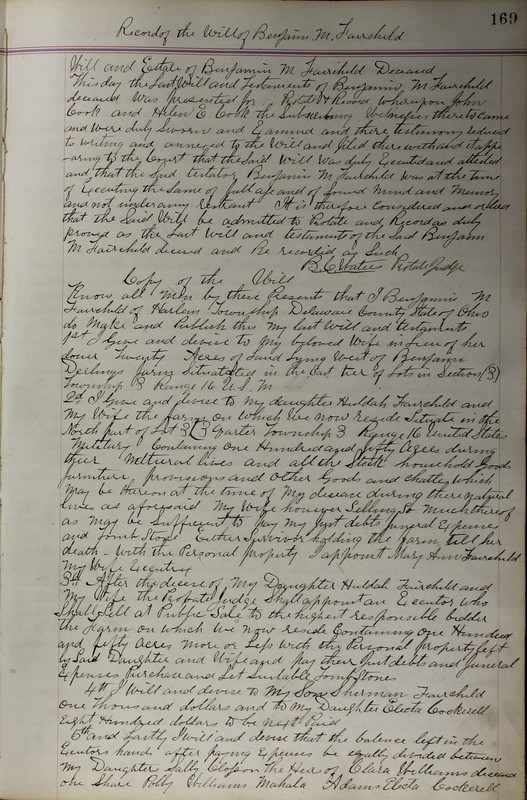 169
Record of the Will of Benjamin M. Fairchild
Will and Estate of Benjamin M Fairchild Deceased
This day the Last Will and Testament of Benjamin M Fairchild
deceased was presented for Probate & Record whereupon John
Cook and Helen E Cook the Subscribing Witnesses thereto came
and were duly Sworn and Examined and there testimony reduced
to writing and annexed to the Will and filed therewith and it appe
-aring to the Court that the Said Will was duly Executed and attested
and that the Said testator Benjamin M Fairchild was at the time
of Executing the Same of full age and of Sound Mind and Memory
and not under any restraint It is therefore Considered and ordered
that the Said Will be admitted to Probate and Record as duly
proved as the Last Will and testament of the Said Benjamin
M Fairchild deceased and be recorded as Such
B C Waters Probate Judge
Copy of the Will
Know all Men by these Presents that I Benjamin M
Fairchild of Harlem Township Delaware County State of Ohio
do Make and Publish this My last Will and testament
1st I Give and devise to My beloved Wife in lieu of her
dower Twenty Acres of Land Lying West of Benjamin
farm Situated in the East tier of Lots in Section (3)
Township 3 Range 16 U. S. M
2d I Give and devise to My daughter Huldah Fairchild and
My Wife the farm on which We now reside Situate in the
North part of Lot 3 (3 Quarter Township 3 Range 16 United States
Military Containing One Hundred and fifty Acres during
their Natural lives and all the Stock household Goods
furniture provisions and Other Goods and Chattles which
May be thereon at the time of My decease during there natural
lives as aforesaid My Wife however Selling So Much thereof
as may be Sufficient to pay My Just debts funeral Expenses
and Tomb Stone Either Survivor holding the farm till her
death - With the Personal Property I appoint Mary Ann Fairchild
My Wife Executrix
3rd After the decese of My Daughter Huldah Fairchild and
My Wife the Probate Judge Shall appoint an Executor who
Shall Sell at Public Sale to the highest responsible bidder
the Farm on which We now reside Containing One Hundred
and fifty Acres More or Less with the personal property left
by Said Daughter and Wife and pay their Just debts and funeral
Expenses Purchase and Set Suitable Tomb Stones
4th I Will and devise to My Son Sherman Fairchild
One thousand dollars and to My Daughter Electa Cockerell
Eight Hundred dollars to be next Paid
5th and Lastly I will and devise that the balance left in the
Executors hands after paying Expenses be equally divided between
My Daughter Sally the Heirs of Clara Williams deceased
one Share Polly Williams Mahala Adams Electa Cockerell